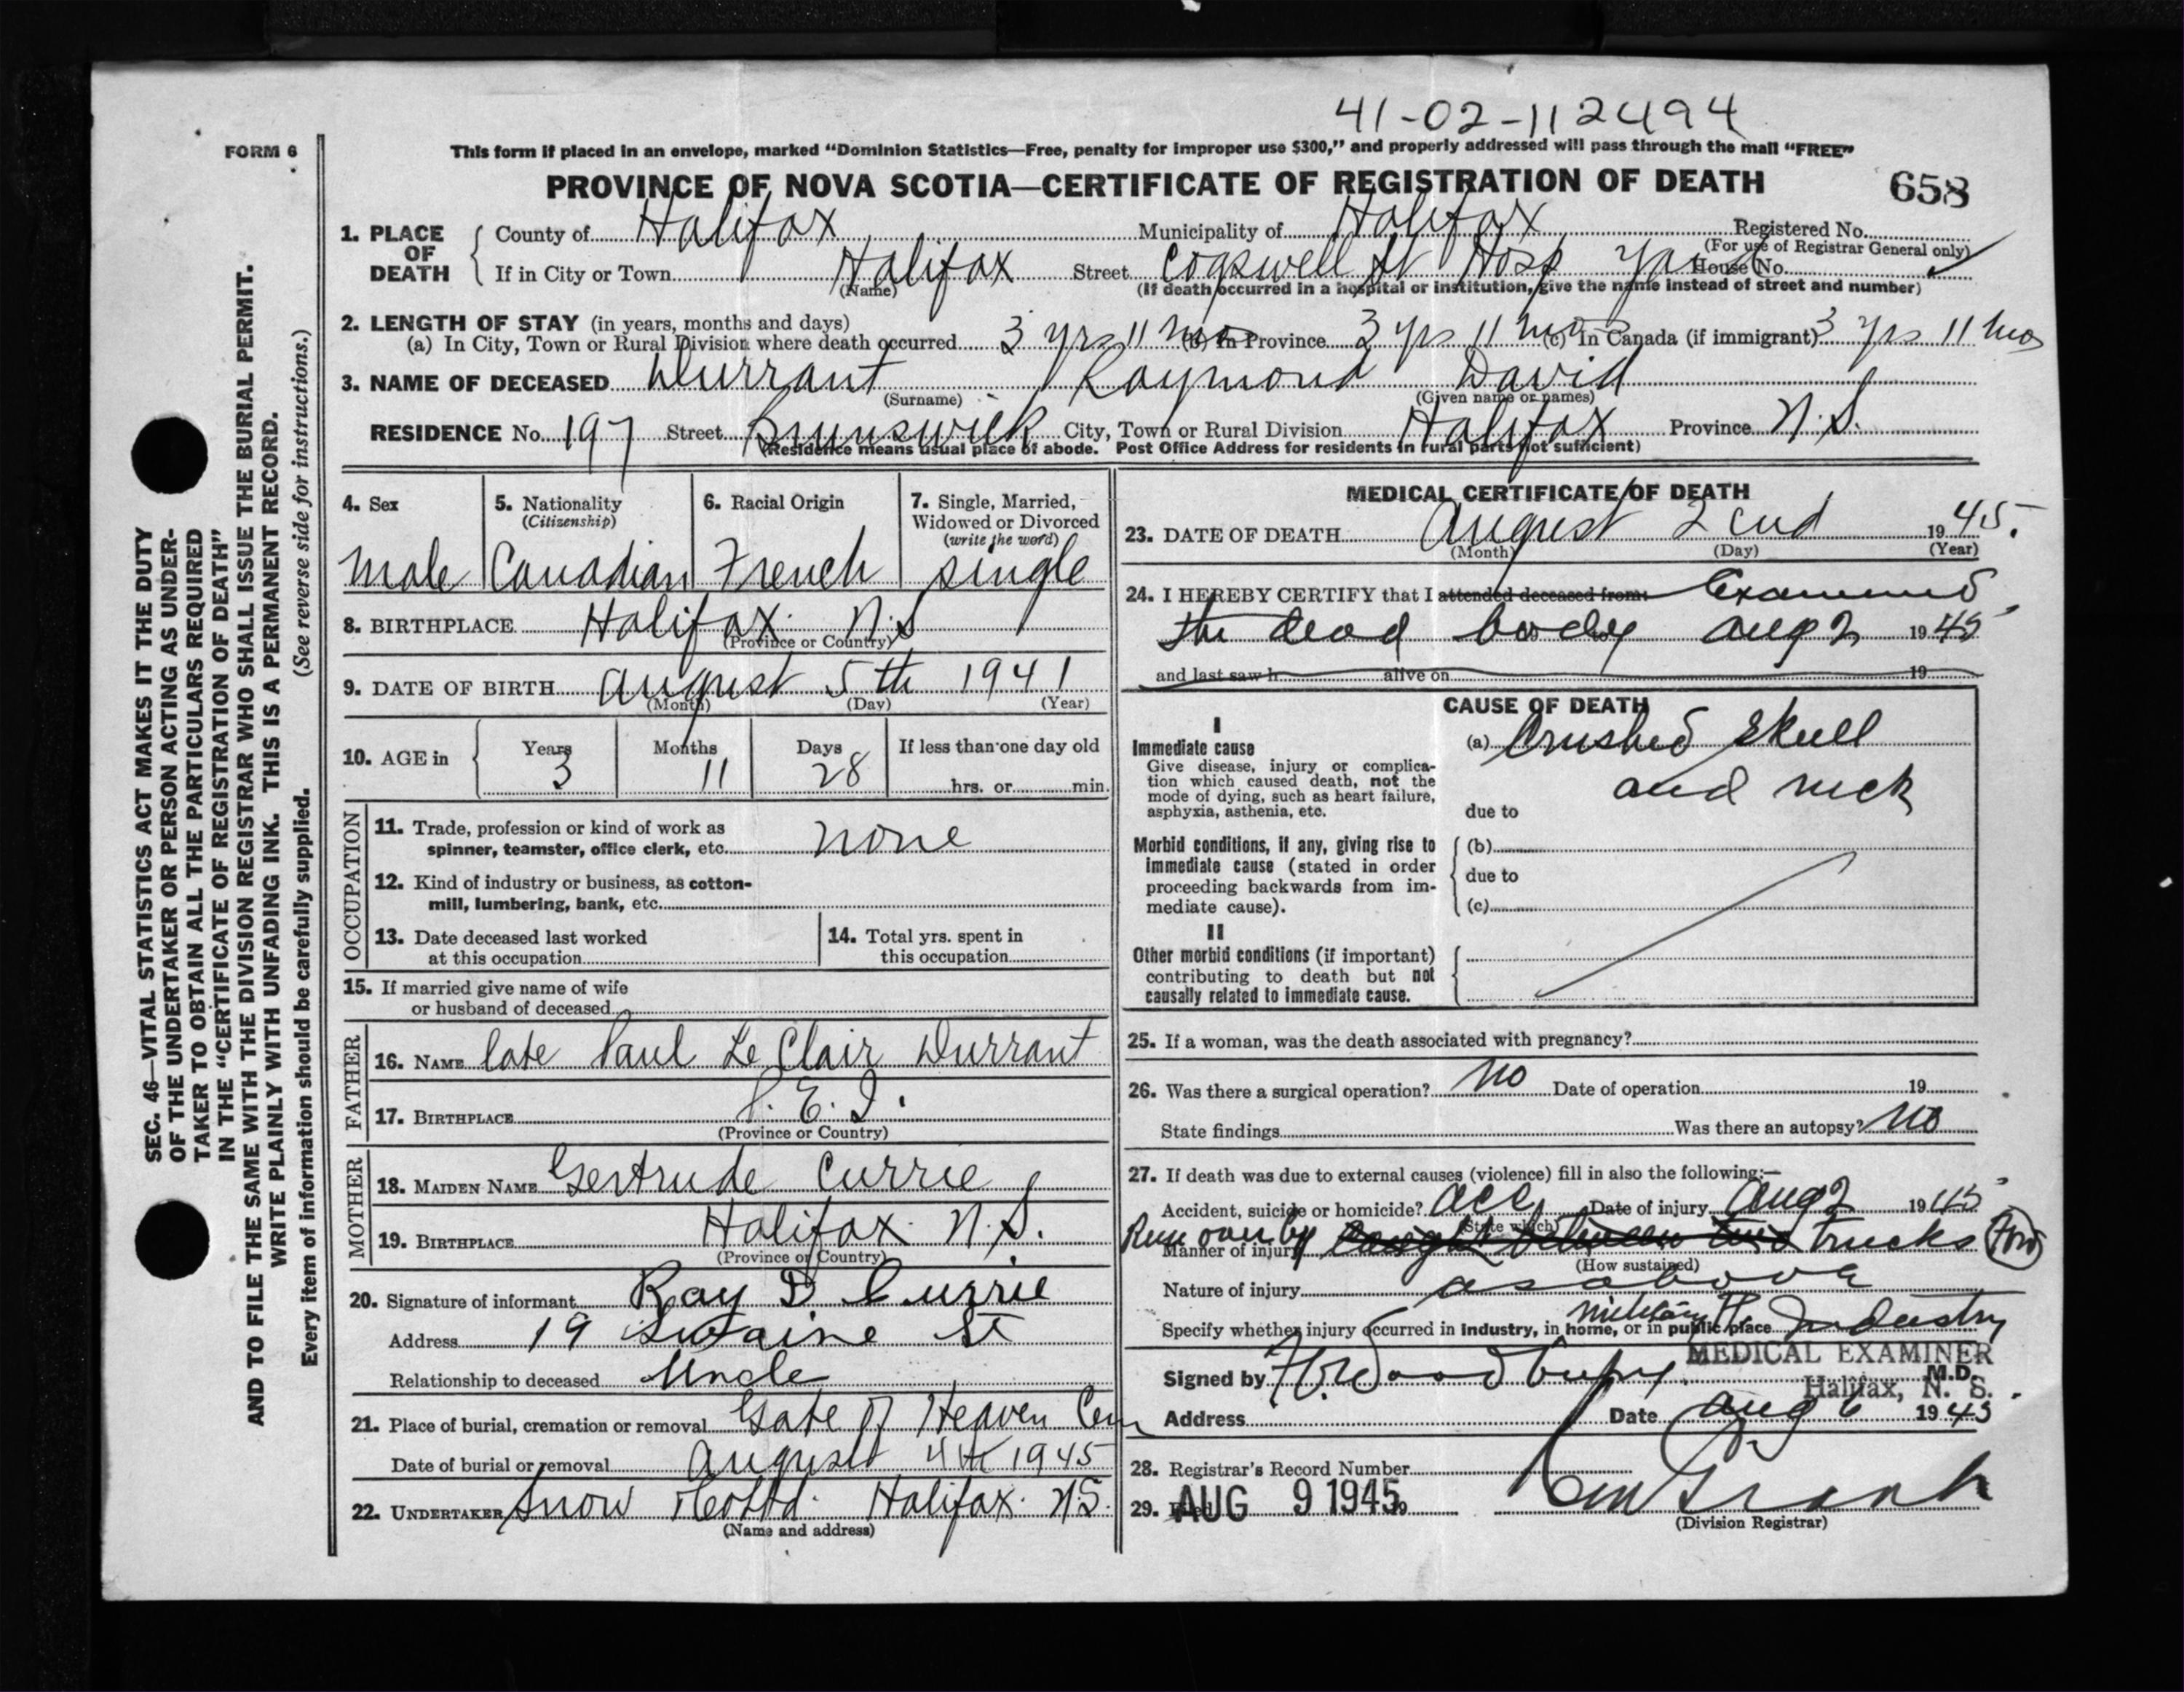 41-02-112494
FORM 6
This form if placed in an envelope, marked "Dominion Statistics—Free, penalty for improper use $300," and properly addressed will pass through the mail "FREE"
PROVINCE OF NOVA SCOTIA—CERTIFICATE OF REGISTRATION OF DEATH
658
1. PLACE OF DEATH
County of Halifax Municipality of Halifax Registered No.
(For use of Registrar General only)
If in City or Town Halifax Street Cogswell St Hosp House No.
(Name) (If death occurred in a hospital or institution, give the name instead of street and number)
2. LENGTH OF STAY (in years, months and days)
(a) In City, Town or Rural Division where death occurred 3 yrs 11 mos (b) In Province 3 yrs 11 mos (c) In Canada (if immigrant) 3 yrs 11 mos
3. NAME OF DECEASED Durrant Raymond David
(Surname) (Given name or names)
RESIDENCE No. 197 Street Brunswick City, Town or Rural Division Halifax Province N.S.
(Residence means usual place of abode. Post Office Address for residents in rural parts not sufficient)
4. Sex
male
5. Nationality
(Citizenship)
Canadian
6. Racial Origin
French
7. Single, Married,
Widowed or Divorced
(write the word)
single
8. BIRTHPLACE Halifax N.S
(Province or Country)
9. DATE OF BIRTH August 5th 1941
(Month) (Day) (Year)
10. AGE in
Years Months Days If less than one day old
3 11 28 hrs. or min.
OCCUPATION
11. Trade, profession or kind of work as
spinner, teamster, office clerk, etc. none
12. Kind of industry or business, as cotton-
mill, lumbering, bank, etc.
13. Date deceased last worked
at this occupation
14. Total yrs. spent in
this occupation
15. If married give name of wife
or husband of deceased
FATHER
16. NAME late Paul Le Clair Durrant
17. BIRTHPLACE P.E.I.
(Province or Country)
MOTHER
18. MAIDEN NAME Gertrude Currie
19. BIRTHPLACE Halifax N.S.
(Province or Country)
20. Signature of informant Ray D. Currie
Address 19 St
Relationship to deceased Uncle
21. Place of burial, cremation or removal Gate of Heaven Cem
Date of burial or removal August 4th 1945
22. UNDERTAKER Snow & Co Ltd. Halifax. N.S.
(Name and address)
MEDICAL CERTIFICATE OF DEATH
23. DATE OF DEATH August 2cnd 1945.
(Month) (Day) (Year)
24. I HEREBY CERTIFY that I attended deceased from: Examined
the dead body Aug 2 1945
and last saw h alive on 19
CAUSE OF DEATH
I
Immediate cause
Give disease, injury or complica-
tion which caused death, not the
mode of dying, such as heart failure,
asphyxia, asthenia, etc.
(a) Crushed skull
and neck
due to
Morbid conditions, if any, giving rise to
immediate cause (stated in order
proceeding backwards from im-
mediate cause).
(b)
due to
(c)
II
Other morbid conditions (if important)
contributing to death but not
causally related to immediate cause.
25. If a woman, was the death associated with pregnancy?
26. Was there a surgical operation? no Date of operation 19
State findings Was there an autopsy? no
27. If death was due to external causes (violence) fill in also the following:—
Accident, suicide or homicide? acc Date of injury Aug 2 1945
(State which)
Manner of injury Run over by caught between two trucks
(How sustained)
Nature of injury as above
Specify whether injury occurred in industry, in home, or in public place military Industry
Signed by MEDICAL EXAMINER
M.D.
Halifax, N. S.
Address Date Aug 6 1945
28. Registrar's Record Number
29. Filed AUG 9 1945
(Division Registrar)
SEC. 46—VITAL STATISTICS ACT MAKES IT THE DUTY
OF THE UNDERTAKER OR PERSON ACTING AS UNDER-
TAKER TO OBTAIN ALL THE PARTICULARS REQUIRED
IN THE "CERTIFICATE OF REGISTRATION OF DEATH"
AND TO FILE THE SAME WITH THE DIVISION REGISTRAR WHO SHALL ISSUE THE BURIAL PERMIT.
WRITE PLAINLY WITH UNFADING INK. THIS IS A PERMANENT RECORD.
Every item of information should be carefully supplied. (See reverse side for instructions.)